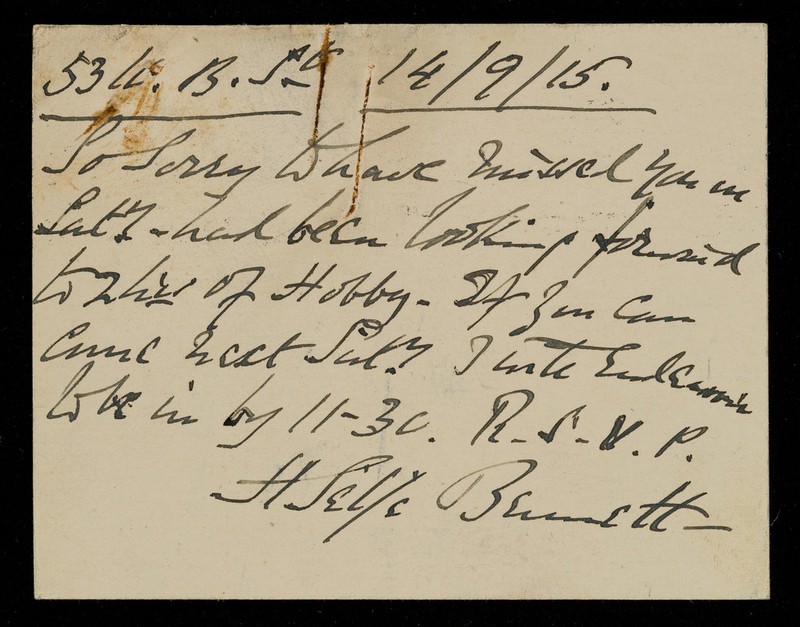 53 W. B. St. 14/9/15.
So sorry to have missed you on
Saty. - had been looking forward
to 2 hrs of Hobby - If you can
come next Saty. I will endeavour
to be in by 11-30. R. S. V. P.
H Selfe Bennett